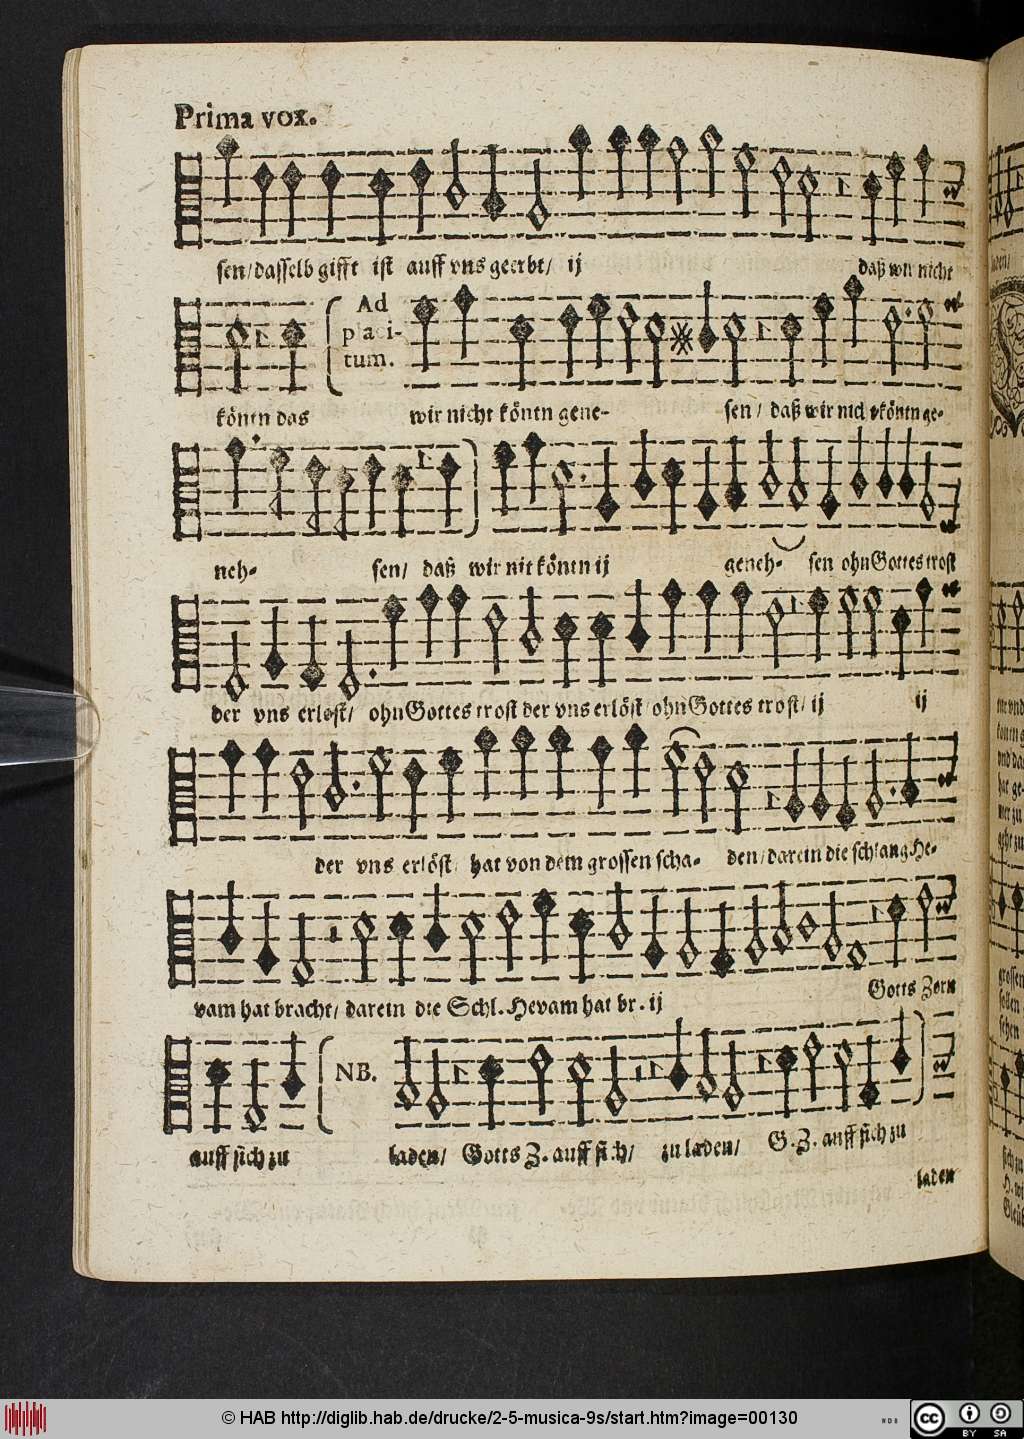 Prima vox.
sen/dasselb gifft ist auff vns geerbt/ ij daß wir nicht
Ad
placi-
tum.
köntn das wir nicht köntn gene- sen/ daß wir nicht köntn ge-
neh- sen/ daß wir nit köntn ij geneh- sen ohn Gottes trost
der vns erlöst/ ohn Gottes trost der vns erlöst/ohn Gottes trost/ ij ij
der vns erlöst/ hat von dem grossen scha- den/darein die schlang He-
vam hat bracht/ darein die Schl. Hevam hat br. ij Gotts Zorn
NB.
auff sich zu laden/ Gotts Z. auff sich/ zu laden/ G. Z. auff sich zu
laden
© HAB http://diglib.hab.de/drucke/2-5-musica-9s/start.htm?image=00130
cc BY SA